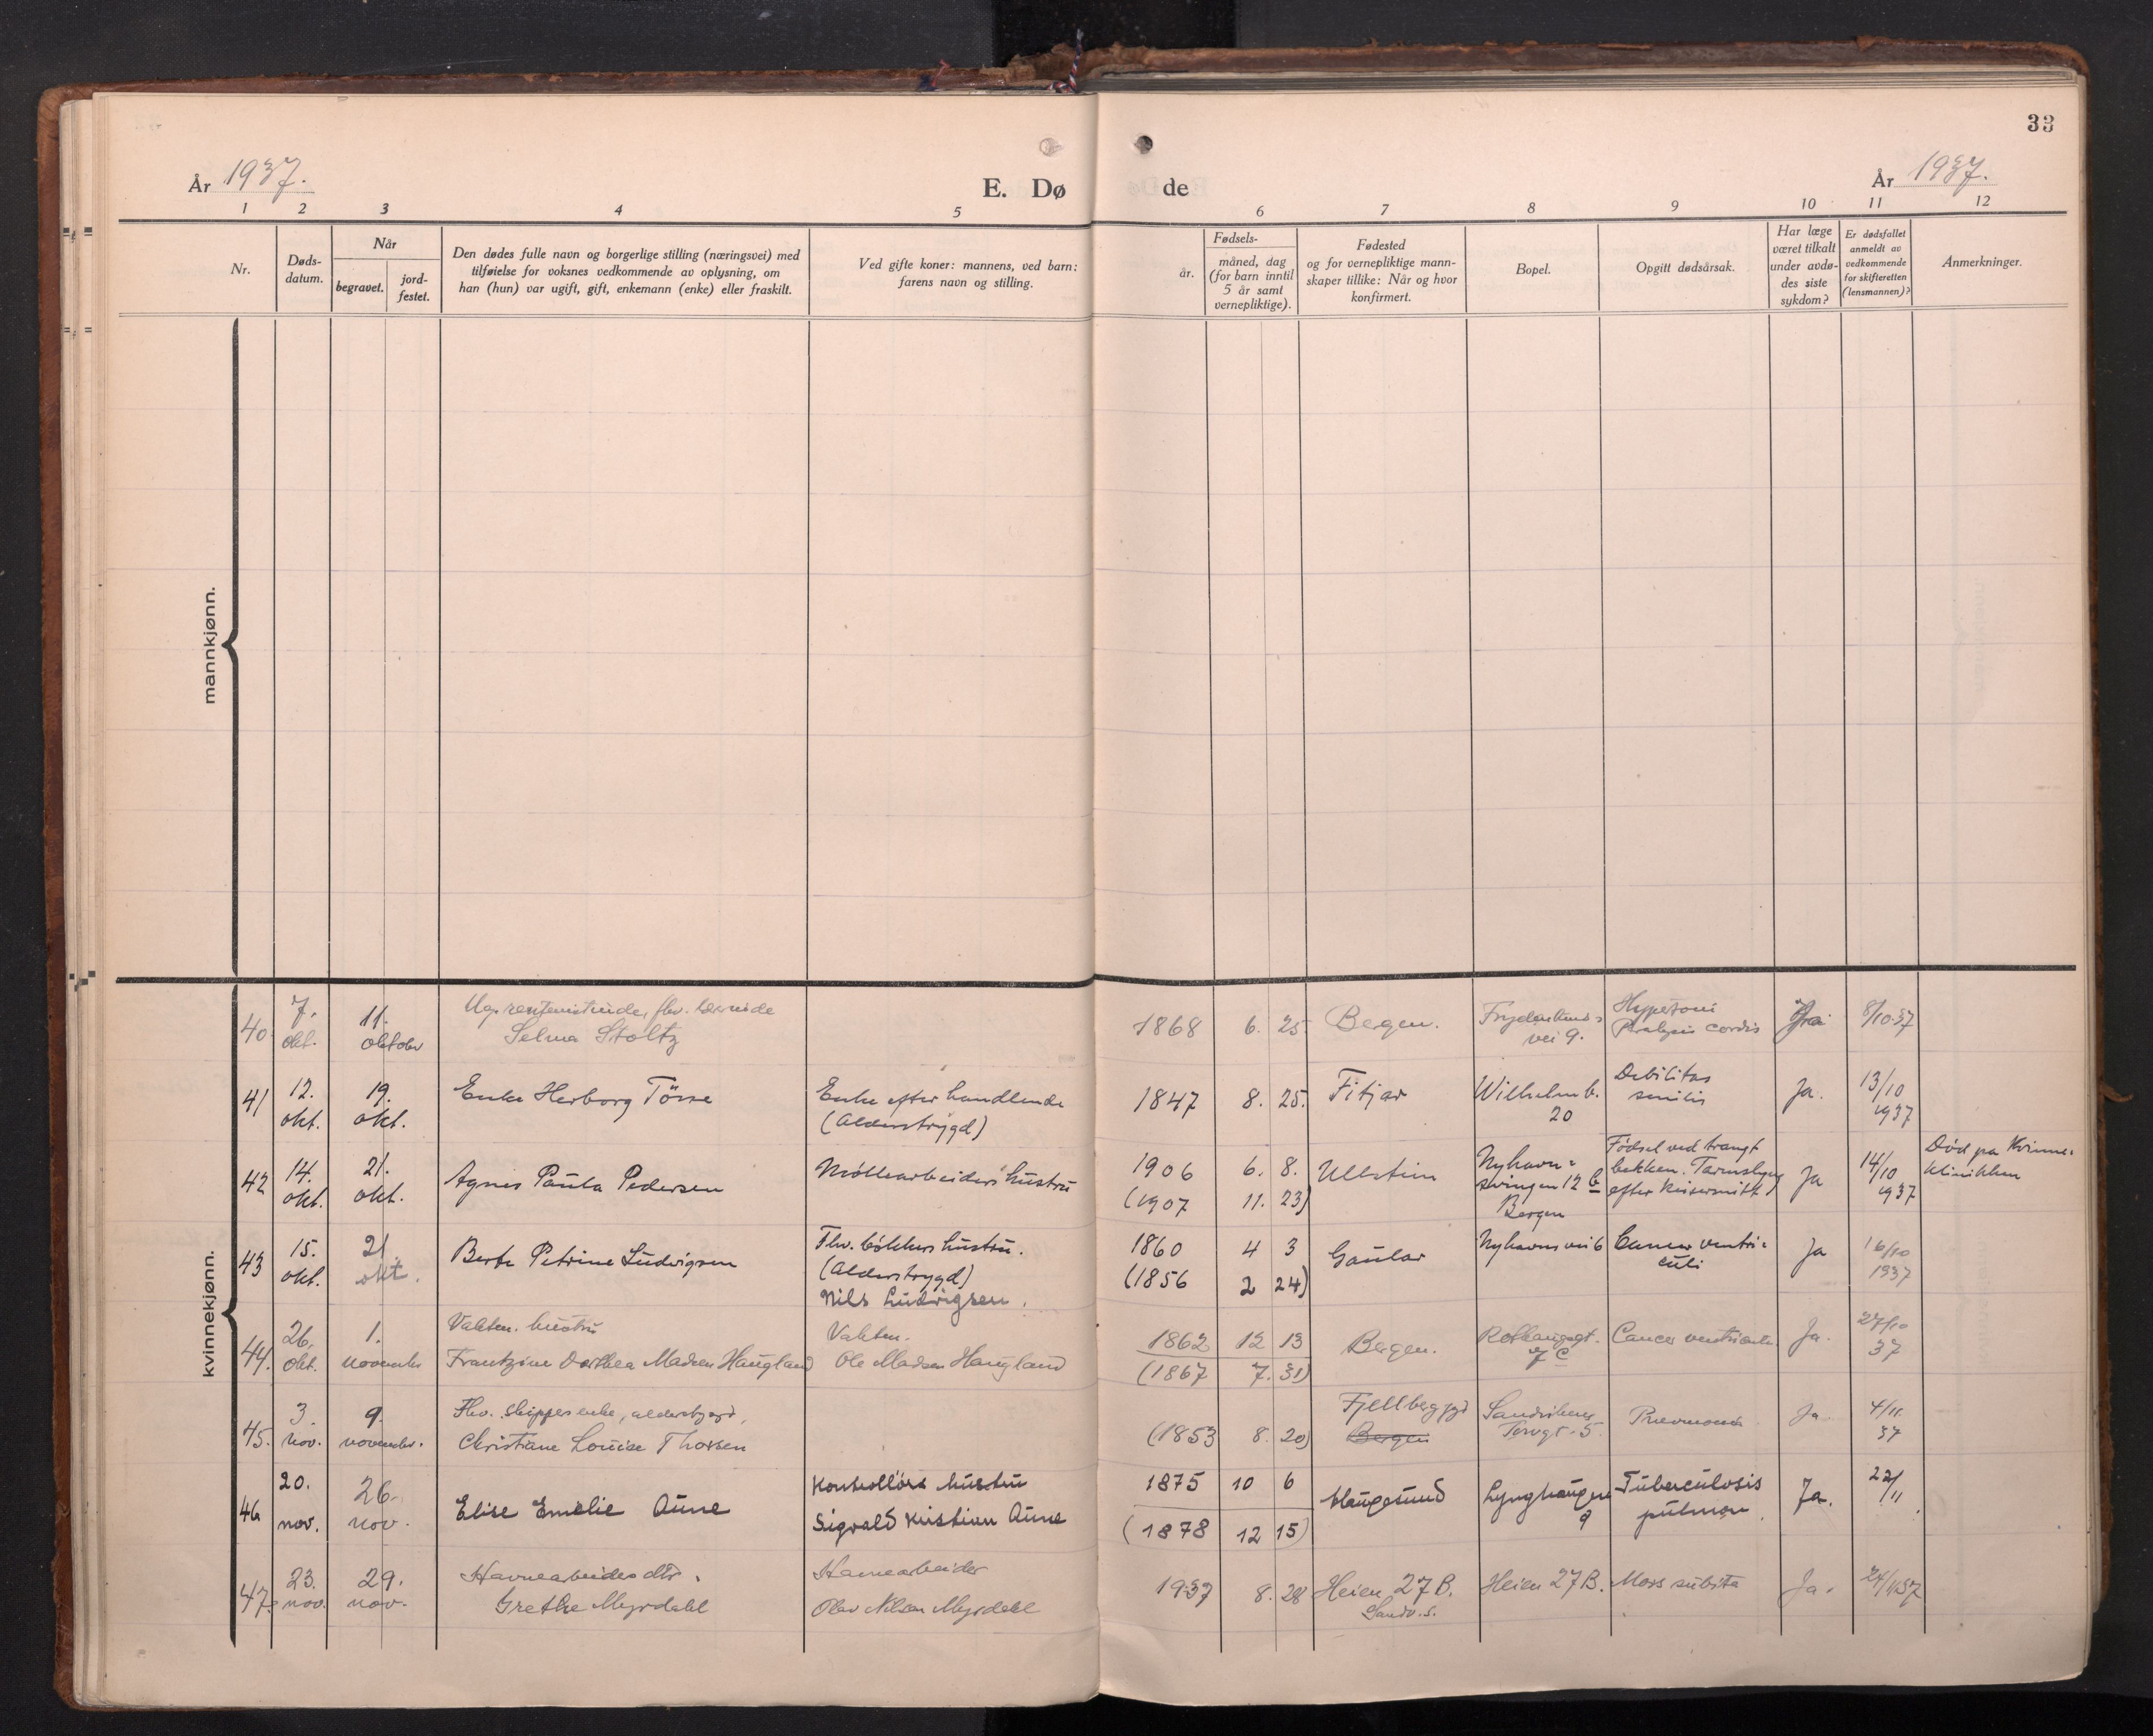 33
År 1937.
E. Dø
de
År 1937.
1 2 3 4 5 6 7 8 9 10 11 12
Nr.
Døds-
datum.
Når
begravet.
jord-
festet.
Den dødes fulle navn og borgerlige stilling (næringsvei) med
tilføielse for voksnes vedkommende av oplysning, om
han (hun) var ugift, gift, enkemann (enke) eller fraskilt.
Ved gifte koner: mannens, ved barn:
farens navn og stilling.
Fødsels-
år.
måned, dag
(for barn inntil
5 år samt
vernepliktige).
Fødested
og for vernepliktige mann-
skaper tillike: Når og hvor
konfirmert.
Bopel.
Opgitt dødsårsak.
Har læge
været tilkalt
under avdø-
des siste
sykdom?
Er dødsfallet
anmeldt av
vedkommende
for skifteretten
(lensmannen)?
Anmerkninger.
mannkjønn.
kvinnekjønn.
40.
7.
okt.
11.
oktober
Ug. flv.
Selma Stoltz
1868 6. 25
Bergen.
vei 9.
cordis
Ja
8/10.37
41
12.
okt.
19.
okt.
Enke Herborg
Enke efter handlende
(Alderstrygd)
1847 8. 25.
Fitjar
Wilhelmb.
20
Debilitas
senilis
Ja.
13/10
1937
42
14.
okt.
21.
okt.
Agnes Paula Pedersen
Møllearbeiders hustru
1906 6. 8.
(1907 11. 23)
Ullstein
Nyhavn=
svingen 12 b
Bergen
Fødsel ved trangt
bekken.
efter keisersnitt
Ja
14/10
1937
Død på Kvinne=
klinikken
43
15.
okt.
21.
okt.
Berte Petrine Ludvigsen
Flv. bökkers hustru.
(Alderstrygd)
Nils Ludvigsen.
1860 4 3
(1856 2 24)
Gaular
Nyhavnsvei 6
Cancer ventri=
culi
Ja
16/10
1937
44.
26.
Okt.
1.
november
Vaktm. hustru
Frantzine Dorthea Madsen Haugland
Vaktm.
Ole Madsen Haugland
1862 12 13
(1867 7. 31)
Bergen.
Rothaugsgt.
7 C
Cancer
Ja.
27/10
37
45.
3.
nov.
9.
november.
Flv. skippers enke, alderstrygd,
Christiane Louise Thorsen
(1853 8. 20)
Bergen
Sandvikens
Torvgt. 5.
Pneumonia
Ja.
4/11.
37
46
20.
nov.
26.
nov.
Elise Emelie Aune
Kontrollörs hustru
Sigvald Kristian Aune
1875 10 6
(1878 12 15)
Haugesund
Lynghaugen
9
Tuberculosis
pulmon.
Ja.
22/11.
47.
23.
nov.
29.
nov.
Havnearbeiders dtr.
Grethe Myrdahl
Havnearbeider
Olav Nilsen Myrdahl
1937 8. 28
Heien 27 B.
Sandv. s.
Heien 27 B.
Mors subita
Ja.
24/11.37